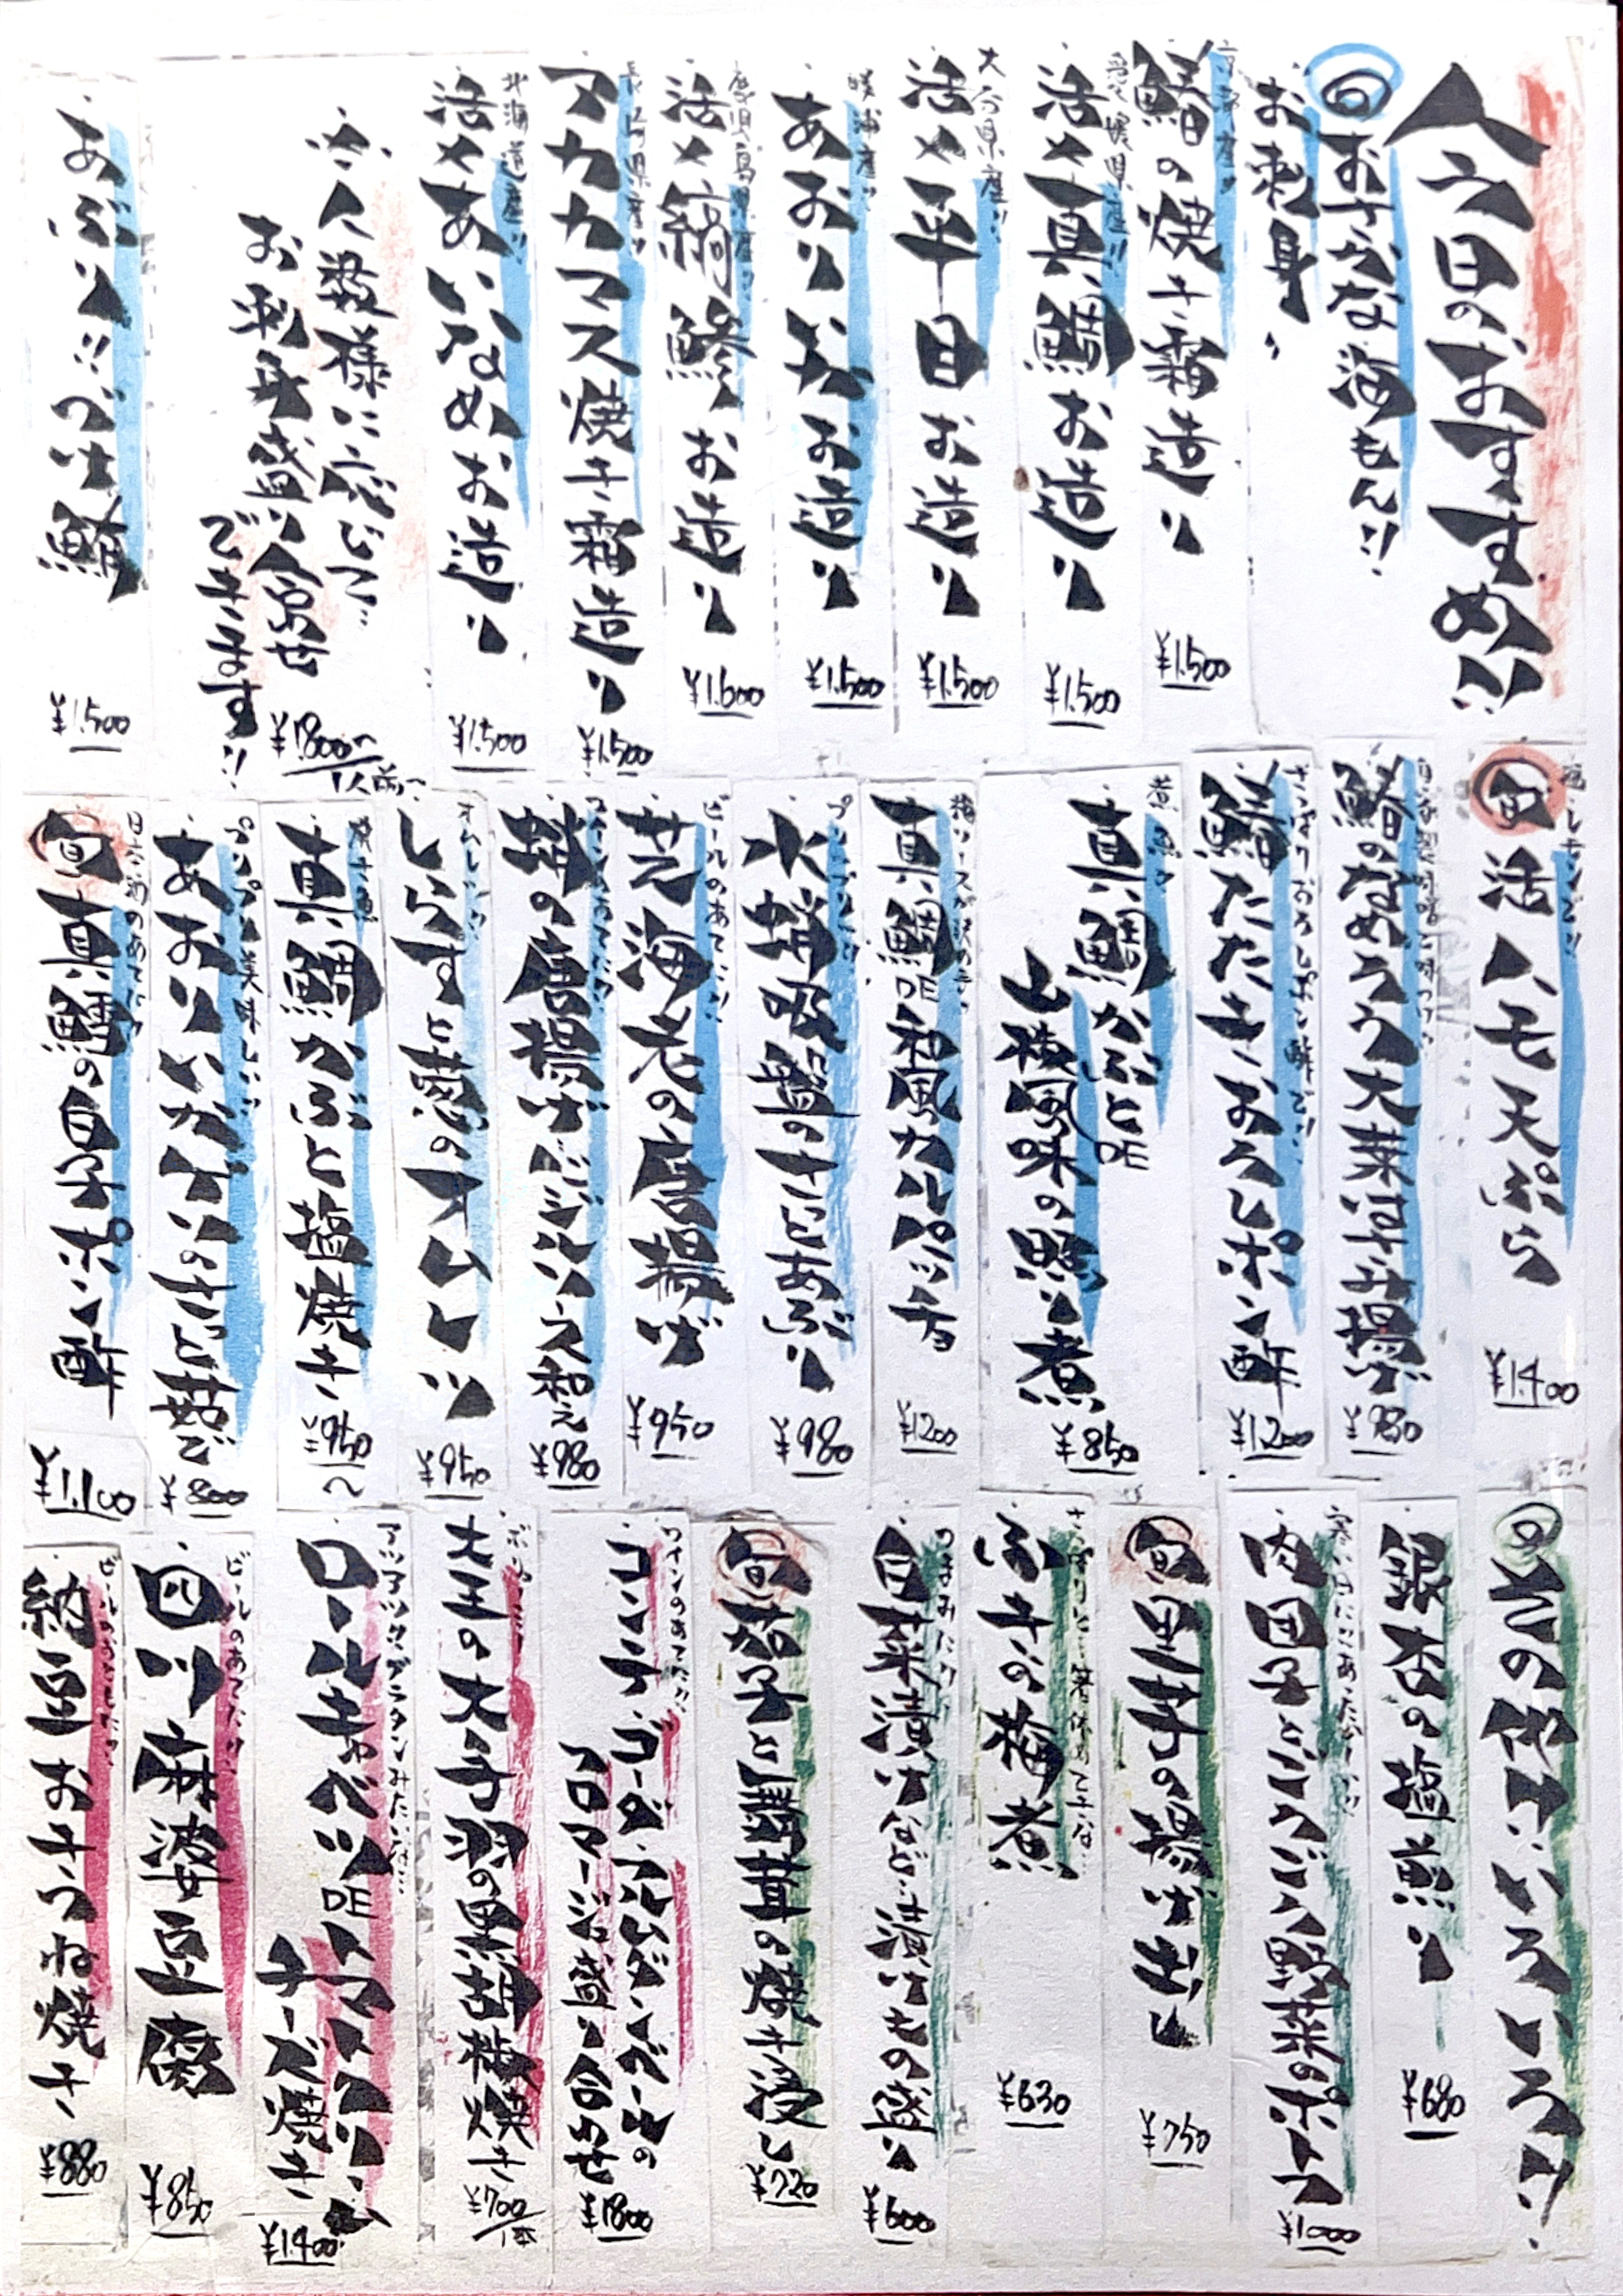 今日のおすすめ!!
旬お手ごろな海もん!!
お刺身
京都産!!
鰆の焼き霜造り
¥1.500
愛媛県産!!
活〆真鯛お造り
¥1.500
大分県産!!
活〆平目お造り
¥1.500
勝浦産!!
あおりいかお造り
¥1.500
鹿児島県産!!
活〆縞鯵お造り
¥1.600
長崎県産!!
アカカマス焼き霜造り
¥1.500
北海道産!!
活〆あいなめお造り
¥1.500
人数様に応じて…
お刺身盛り合せ
できます!!
¥1.800〜/1人前〜
あぶり!!づけ鮪
¥1.500
旬活ハモ天ぷら
¥1.400
鰆のなめろう大葉はさみ揚げ
¥980
さっぱりおろしポン酢で!!
鰆たたきおろしポン酢
¥1200
煮魚!!
真鯛かぶとDE
山椒風味の照り煮
¥850
梅ソースが決め手!!
真鯛DE和風カルパッチョ
¥1200
水蛸吸盤のさっとあぶり
¥980
ビールのあてに!!
芝海老の唐揚げ
¥950
蛸の唐揚げバジルソース和え
¥980
しらすと葱のオムレツ
¥950
焼き魚
真鯛かぶと塩焼き
¥950〜
プリプリ美味しい!!
あおりいかげそのさっと茹で
¥800
日本酒のあてに!!
旬真鱈の白子ポン酢
¥1.100
その他いろいろ!!
銀杏の塩煎り
¥680
肉団子とゴロゴロ野菜のポトフ
¥1000
旬里芋の揚げ出し
¥750
ふきの梅煮
¥630
つまみに!!
白菜漬けなど漬けもの盛り
¥600
旬茄子と舞茸の焼き浸し
¥720
ワインのあてに!!
コンテ、ゴーダ、アルムダンブールの
フロマージュ盛り合わせ
¥1800
大王の大手羽の黒胡椒焼き
¥700/1本
アツアツ!!グラタンみたいな…
ロールキャベツDEトマトクリーム
チーズ焼き
¥1400
ビールのあてに!!
四川麻婆豆腐
¥850
納豆おきつね焼き
¥880